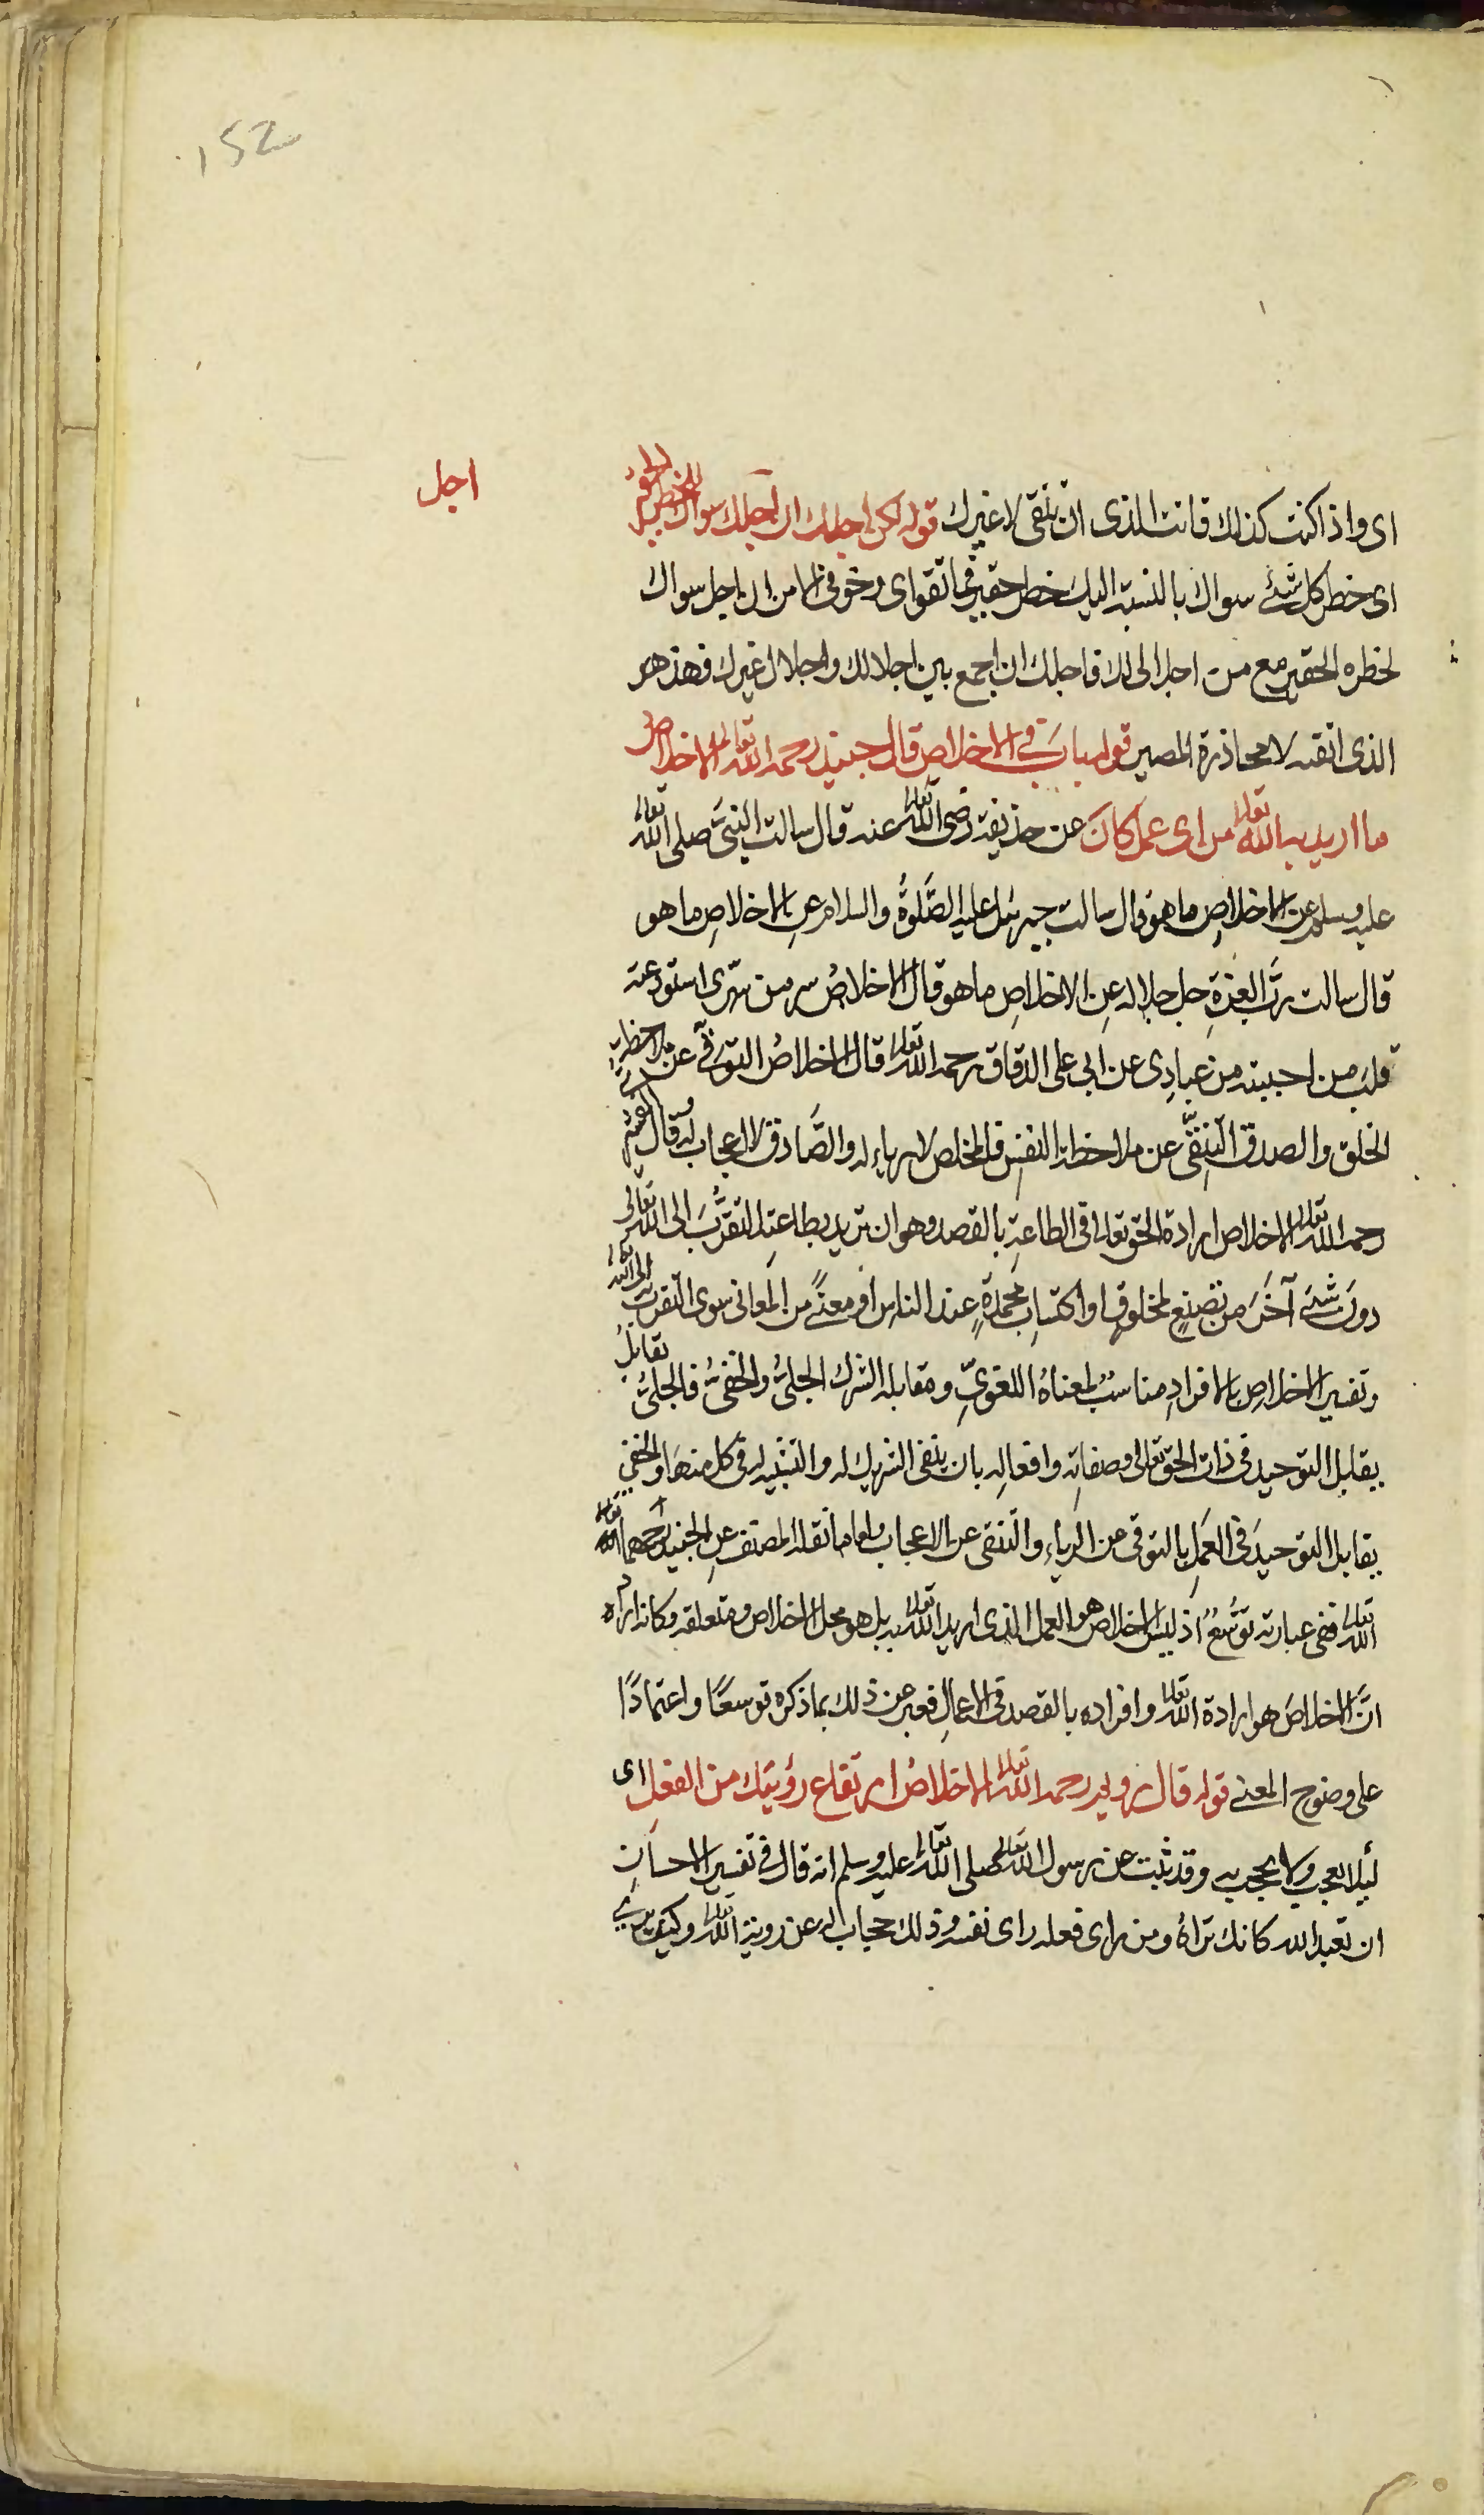 152
اجل
اى واذا كنت كذلك فانت الذى ان تتقى لا غيرك قوله لكن اجلك ان اجل سواك للخطر الحقير
اى خطر كل شئ سواك بالنسبة اليك خطر حقير فما تقواى وخوفى الا من ان اجل سواك
لخطره الحقير مع من اجل الى لك فاجلك ان اجمع بين اجلالك واجلال غيرك فهذ هو
الذى اتقيه لا محاذرة المصير قوله باب فى الاخلاص قال جنيد رحمه الله تعالى الاخلاص
ما اريد به الله تعالى من اى عمل كان عن حذيفة رضى الله تعالى عنه قال سالت النبى صلى الله تعالى
عليه وسلم عن الاخلاص ما هو قال سالت جبرئيل عليه الصلوة والسلام عن الاخلاص ما هو
قال سالت رب العزة جل جلاله عن الاخلاص ما هو قال الاخلاص سر من سرى استودعته
قلب من احببته من عبادى عن ابى على الدقاق رحمه الله تعالى قال الاخلاص التوقى عن ملاحظة
الخلق والصدق التنقى عن ملاحظة النفس فالمخلص لا رياء له والصادق لا اعجاب له وقال القشيرى
رحمه الله تعالى الاخلاص ارادة الحق تعالى فى الطاعة بالقصد وهو ان تريد بطاعته التقرب الى الله تعالى
دون شئ آخر من تصنع لمخلوق او اكتساب محمدة عند الناس او معنى من المعانى سوى التقرب الى الله تعالى
وتفسير الاخلاص بالافراد مناسب لمعناه اللغوى ومقابله الشرك الجلى والخفى فالجلى تقابل
يقابل التوحيد فى ذات الحق تعالى وصفاته وافعاله بان ينفى الشريك له والتشبيه له فى كل منها والخفى
يقابل التوحيد فى العمل بالتوقى عن الرياء والتنقى عن الاعجاب واما ما نقله المصنف عن الجنيد رحمهما الله تعالى
الله تعالى ففى عبارته توسع اذ ليس الاخلاص هو العمل الذى اريد الله تعالى به بل هو محل الاخلاص ومتعلقه وكانه اراد
ان الاخلاص هو ارادة الله تعالى وافراده بالقصد فى الاعمال فعبر عن ذلك بما ذكره توسعًا واعتمادًا
على وضوح المعنى قوله قال رويم رحمه الله تعالى الاخلاص ارتفاع رؤيتك من الفعل اى
ليلا يعجب ولا يحجب به وقد ثبت عن رسول الله تعالى صلى الله تعالى عليه وسلم انه قال فى تفسير الاحسان
ان تعبد الله كانك تراه ومن راى فعله راى نفسه وذلك حجاب له عن روية الله تعالى وكيف يرى